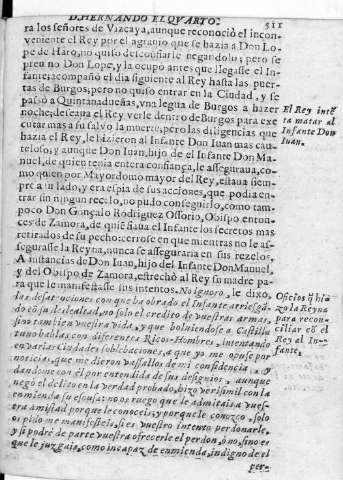 D. HERNANDO EL QVARTO. 511
ra los señores de Vizcaya, aunque reconoció el incon-
veniente el Rey por el agrauio que se hazia a Don Lo-
pe de Haro, no quiso desconfiarle negandolo; pero se
preu no Don Lope, y la ocupó antes que llegasse el In-
fante; acompañó el dia siguiente al Rey hasta las puer-
tas de Burgos; pero no quiso entrar en la Ciudad, y se
passó a Quintanadueñas, vna legua de Burgos a hazer
noche; deseaua el Rey verle dentro de Burgos para exe
cutar mas a su salvo la muerte, pero las diligencias que
hazia el Rey, le hizieron al Infante Don Iuan mas cau-
teloso, y aunque Don Iuan, hijo de el Infante Don Ma-
nuel, de quien tenia entera confiança, le asseguraua, co-
mo quien por Mayordomo mayor del Rey, estaua siem-
pre a su lado, y era espia de sus acciones, que podia en-
trar sin ningun recelo, no pudo conseguirlo, como tam-
poco Don Gonçalo Rodriguez Ossorio, Obispo enton-
ces de Zamora, de quiē fiaua el Infante los secretos mas
retirados de su pecho: cerrose en que mientras no le as-
segurasse la Reyna, nunca se asseguraria en sus rezelos.
A instancias de Don Iuan, hijo del Infante Don Manuel,
y del Obispo de Zamora, estrechó al Rey su madre pa-
ra que le manifestasse sus intentos. No ignoro, le dixo,
las desatenciones con que ha obrado el Infante arriesgā-
do cō su deslealtad, no solo el credito de vuestras armas,
sino tambiē a vuestra vida, y que bolviendose a Castilla
tuuo hablas con diferentes Ricos-Hombres, intentando
en varias ciudades soblebaciones, a que yo me opuse por
noticias, que me dieron vassallos de mi confidencia, y
dandome con él por entendida de sus designios, aunque
negó el delito en la verdad probado, hizo verisimil con la
enmienda su escusa: no os ruego que le admitais a vues-
tra amistad porque le conoceis, y porque le conozco, solo
os pido me manifesteis, si es vuestro intento perdonarle,
y si podré de parte vuestra ofrecerle el perdon, ò no, sino es
que le juzgais, como incapaz de enmienda, indigno de el
per-
El Rey intē
ta matar al
Infante Don
Iuan.
Oficios q̄ hi-
zo la Reyna
para recon-
ciliar cō el
Rey al In-
fante.